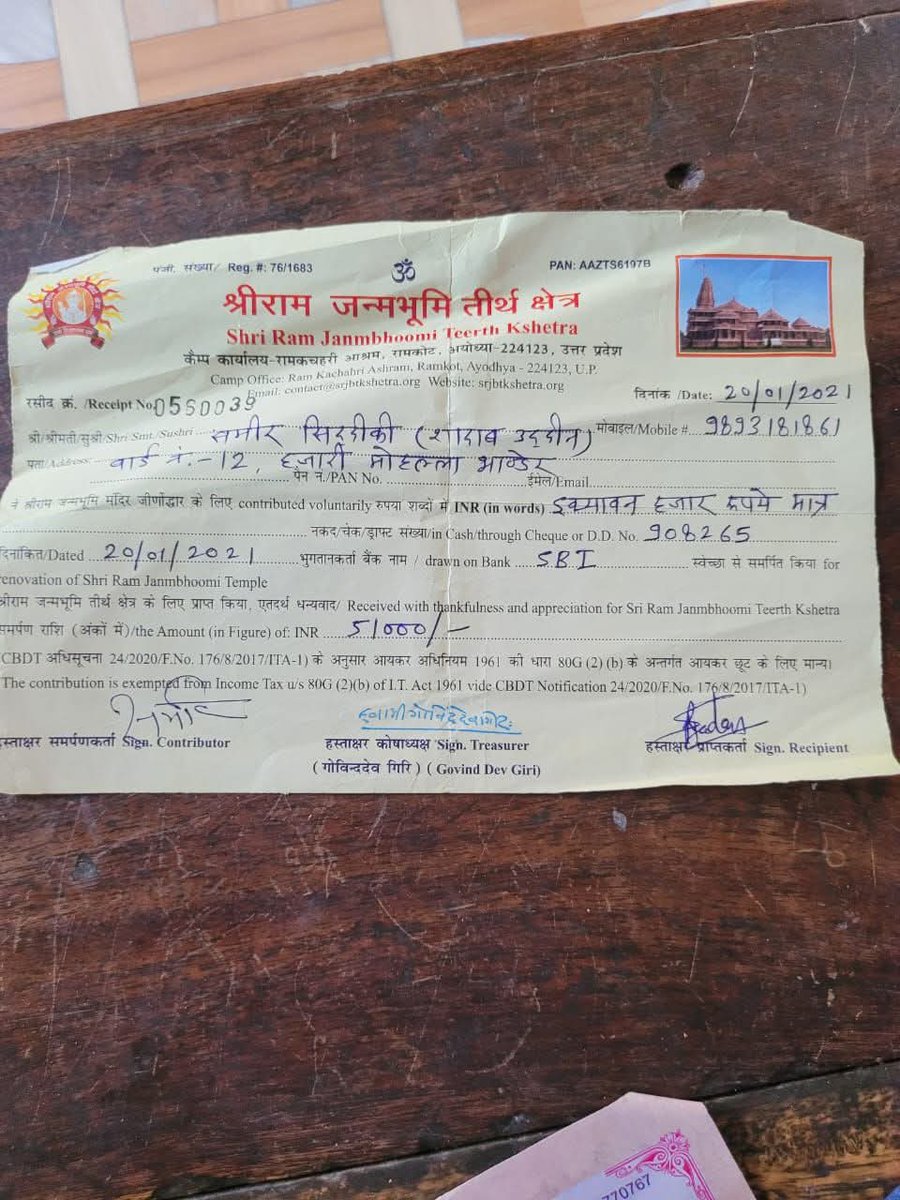 पंजी. संख्या/ Reg. #: 76/1683 ॐ PAN: AAZTS6197B
श्रीराम जन्मभूमि तीर्थ क्षेत्र
Shri Ram Janmbhoomi Teerth Kshetra
कैम्प कार्यालय-रामकचहरी आश्रम, रामकोट, अयोध्या-224123, उत्तर प्रदेश
Camp Office: Ram Kachahri Ashram, Ramkot, Ayodhya - 224123, U.P.
Email: contact@srjbtkshetra.org Website: srjbtkshetra.org
रसीद क्र. /Receipt No. 0560039 दिनांक /Date: 20/01/2021
श्री/श्रीमती/सुश्री/Shri Smt./Sushri समीर सिद्दीकी (शादाब उद्दीन) मोबाइल/Mobile # 9893181861
पता/Address वार्ड नं.-12, हजारी मोहल्ला भाण्डेर
पेन नं./PAN No. ईमेल/Email
ने श्रीराम जन्मभूमि मंदिर जीर्णोद्धार के लिए contributed voluntarily रुपया शब्दों में INR (in words) इक्यावन हजार रूपये मात्र
नकद/चेक/ड्राफ्ट संख्या/in Cash/through Cheque or D.D. No. 908265
दिनांकित/Dated 20/01/2021 भुगतानकर्ता बैंक नाम / drawn on Bank SBI स्वेच्छा से समर्पित किया for
renovation of Shri Ram Janmbhoomi Temple
श्रीराम जन्मभूमि तीर्थ क्षेत्र के लिए प्राप्त किया, एतदर्थ धन्यवाद/ Received with thankfulness and appreciation for Sri Ram Janmbhoomi Teerth Kshetra
समर्पण राशि (अंकों में)/the Amount (in Figure) of: INR 51000/-
CBDT अधिसूचना 24/2020/F.No. 176/8/2017/ITA-1) के अनुसार आयकर अधिनियम 1961 की धारा 80G (2) (b) के अन्तर्गत आयकर छूट के लिए मान्य।
(The contribution is exempted from Income Tax u/s 80G (2)(b) of I.T. Act 1961 vide CBDT Notification 24/2020/F.No. 176/8/2017/ITA-1)
हस्ताक्षर समर्पणकर्ता Sign. Contributor हस्ताक्षर कोषाध्यक्ष Sign. Treasurer हस्ताक्षर प्राप्तकर्ता Sign. Recipient
(गोविन्ददेव गिरि) (Govind Dev Giri)
770767